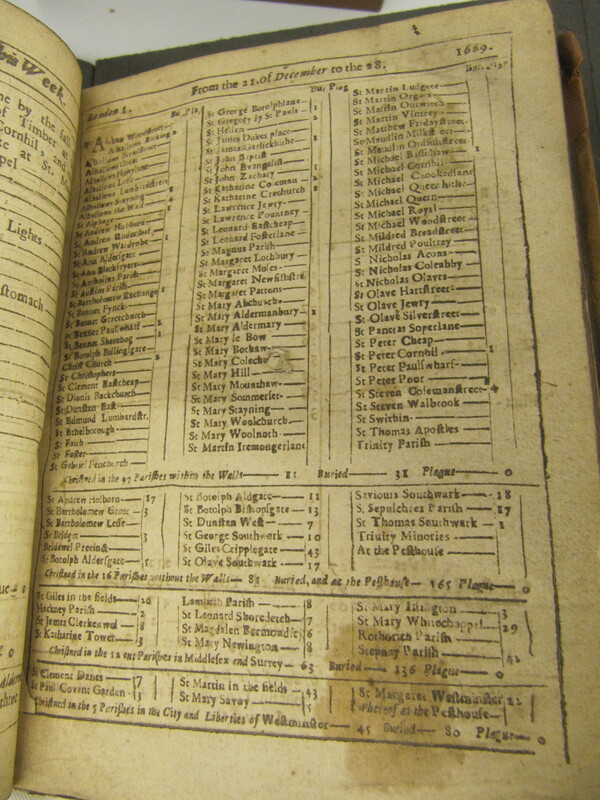 he Week.
ne by the fall
of Timber at
Cornhil and
e at St. M
pel
Lights
stomach
London 1. From the 21. of December to the 28. 1669.
Bu. Pla.
Alhallows Barking
Alhallows Breadstreet
Alhallows Great
Alhallows Honylane
Alhallows Lesse
Alhallows Lumbardstreet
Alhallows Stayning
Alhallows the Wall
St Alphage
St Andrew Hubbard
St Andrew Undershaft
St Andrew Wardrobe 1
St Ann Aldersgate
St Ann Blackfryers
St Antholins Parish
St Austins Parish
St Bartholomew Exchange 1
St Bennet Fynck
St Bennet Gracechurch
St Bennet Paulswharf 2
St Bennet Sherehog
St Botolph Billingsgate
Christ Church 2
St Christophers
St Clement Eastcheap
St Dionis Backchurch
St Dunstan East
St Edmund Lumbardstr.
St Ethelborough
St Faith
St Foster
St Gabriel Fenchurch
Bu. Plag
St George Botolphlane 1
St Gregory by St Pauls
St Hellen
St James Dukes place
St James Garlickhithe
St John Baptist
St John Evangelist
St John Zachary
St Katharine Coleman 2
St Katharine Crechurch
St Lawrence Jewry
St Lawrence Pountney
St Leonard Eastcheap
St Leonard Fosterlane
St Magnus Parish
St Margaret Lothbury
St Margaret Moses
St Margaret Newfishstre.
St Margaret Pattons
St Mary Abchurch
St Mary Aldermanbury 2
St Mary Aldermary
St Mary le Bow
St Mary Bothaw
St Mary Colechurch
St Mary Hill
St Mary Mounthaw
St Mary Sommerset
St Mary Stayning
St Mary Woolchurch
St Mary Woolnoth
St Martin Iremongerlane
Bu. Plag
St Martin Ludgate
St Martin Orgars
St Martin Outwitch
St Martin Vintrey
St Matthew Fridaystreet
St Maudlin Milkstreet
St Maudlin Oldfishstreet
St Michael Bassishaw
St Michael Cornhil
St Michael Crookedlane
St Michael Queenhithe
St Michael Quern
St Michael Royal
St Michael Woodstreet
St Mildred Breadstreet
St Mildred Poultrey
S Nicholas Acons
S Nicholas Coleabby
St Nicholas Olaves
St Olave Hartstreet
St Olave Jewry
St Olave Silverstreet
St Pancras Soperlane
St Peter Cheap
St Peter Cornhil 1
St Peter Paulswharf
St Peter Poor
St Steven Colemanstreet 4
St Steven Walbrook
St Swithin
St Thomas Apostles
Trinity Parish
Christned in the 97 Parishes within the Walls Buried 31 Plague 0
St Andrew Holborn 17
St Bartholomew Great 3
St Bartholomew Lesse
St Bridget 3
Bridewel Precinct
St Botolph Aldersgate
St Botolph Aldgate 11
St Botolph Bishopsgate 13
St Dunstan West 7
St George Southwark 10
St Giles Cripplegate 43
St Olave Southwark 17
Saviours Southwark 18
S. Sepulchres Parish 17
St Thomas Southwark 1
Trinity Minories
At the Pesthouse
Christned in the 16 Parishes without the Walls Buried, and at the Pesthouse 165 Plague 0
St Giles in the fields 20
Hackney Parish 2
St James Clerkenwel 8
St Katharine Tower 3
Lambeth Parish 8
St Leonard Shoreditch 7
St Magdalen Bermondsey 6
St Mary Newington 8
St Mary Islington 3
St Mary Whitechappel 29
Rothorith Parish
Stepney Parish 42
Christned in the 12 out Parishes in Middlesex and Surrey 63 Buried 136 Plague 0
St Clement Danes 17
St Paul Covent Garden
St Martin in the fields 43
St Mary Savoy 5
St Margaret Westminster
whereof at the Pesthouse
Christned in the 5 Parishes in the City and Liberties of Westminster 45 Buried 80 Plague 0